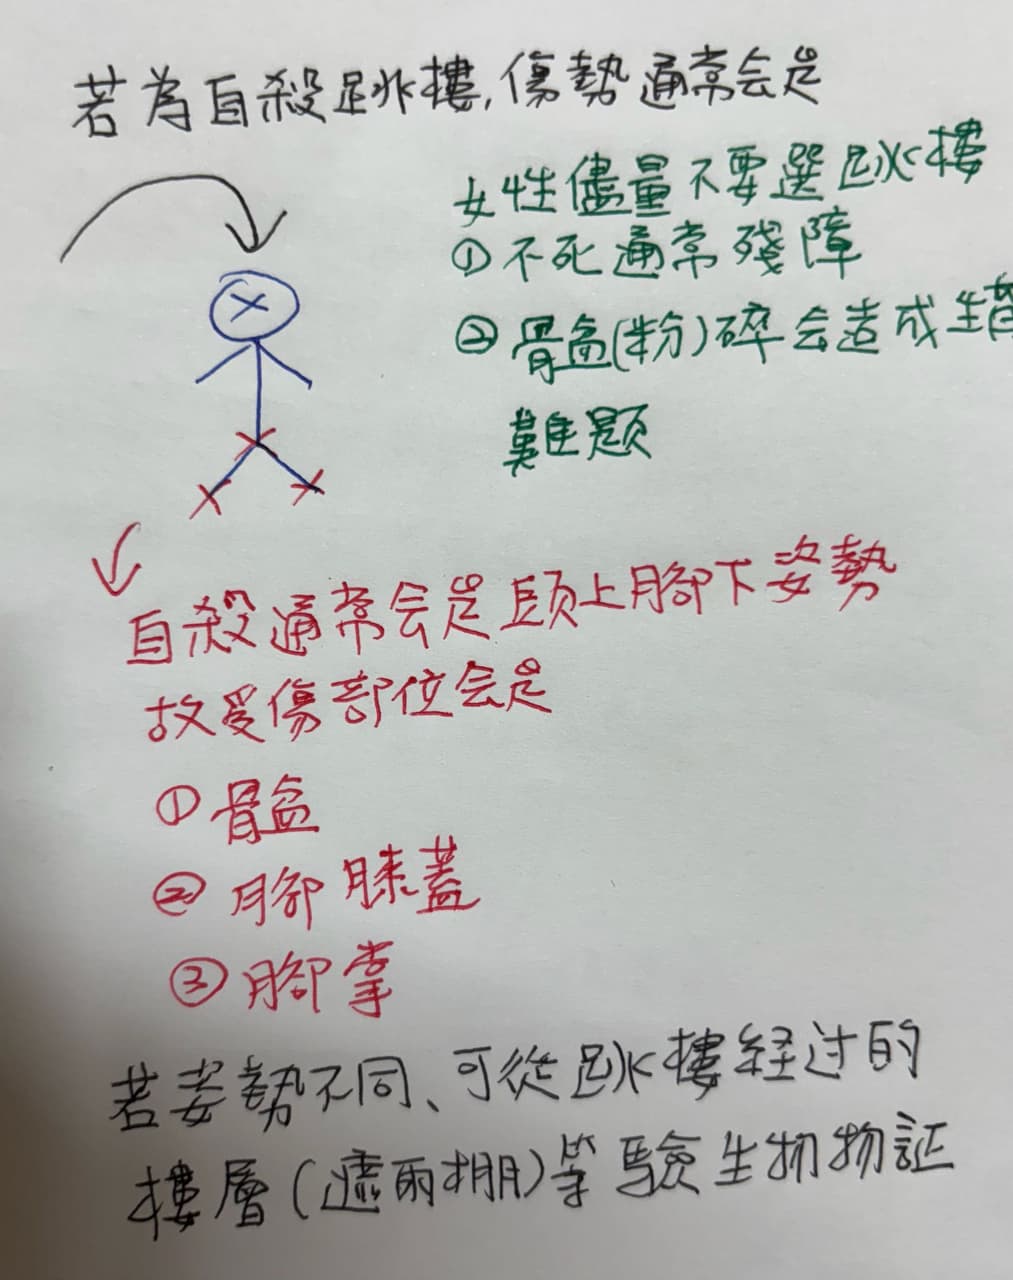 若為自殺跳樓,傷勢通常会是
女性儘量不要選跳樓
①不死通常殘障
②骨盆(粉)碎会造成生育
難題
自殺通常会是頭上腳下姿勢
故受傷部位会是
①骨盆
②腳膝蓋
③腳掌
若姿勢不同、可從跳樓経过的
樓層(遮雨棚)等驗生物物証